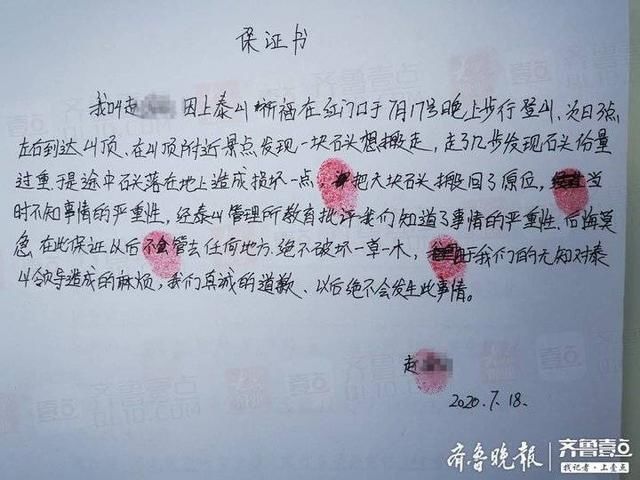 保证书
我叫赵 因上泰山祈福在红门口于7月17号晚上步行登山,次日3点
左右到达山顶、在山顶附近景点发现一块石头想搬走,走了几步发现石头份量
过重,于是途中石头落在地上造成损坏一点,把大块石头搬回了原位,当
时不知事情的严重性,经泰山管理所教育批评我们知道了事情的严重性.后悔莫
急,在此保证以后不管去任何地方.绝不破坏一草一木,由于我们的无知对泰
山领导造成的麻烦,我们真诚的道歉、以后绝不会发生此事情。
赵
2020.7.18.
齐鲁晚报 齐鲁壹点
找记者·上壹点